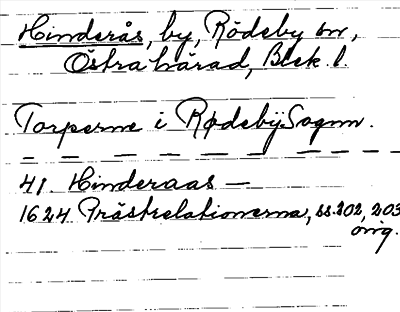 Hinderås, by, Rödeby sn,
Östra härad, Blek. l.
Torperne i Rødebÿ Sognn.
41. Hinderaas —
1624 Prästrelationerna, ss. 202, 203
orig.